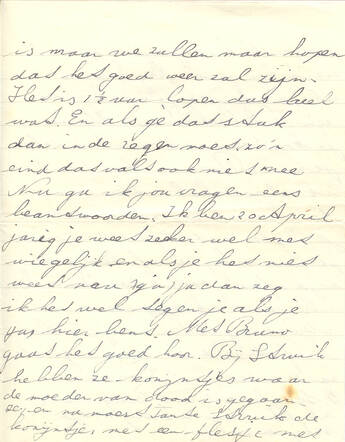 is maar we zullen maar hopen
dat het goed weer zal zijn.
Het is 1½ uur lopen dus heel
wat. En als je dat stuk
dan in de regen moet, zo'n
eind dat valt ook niet mee
Nu ga ik jou vragen eens
beantwoorden. Ik ben 20 April
jarig je weet zeker wel met
wiegelijk en als je het niet
weet nou zg'n ja dan zeg
ik het wel tegen je als je
hier bent. Met Bruno
gaat het goed hoor. Bij Struik
hebben ze konijntjes waar
de moeder van dood is gegaan
en nu moet tante Struik de
konijntjes met een flesje met